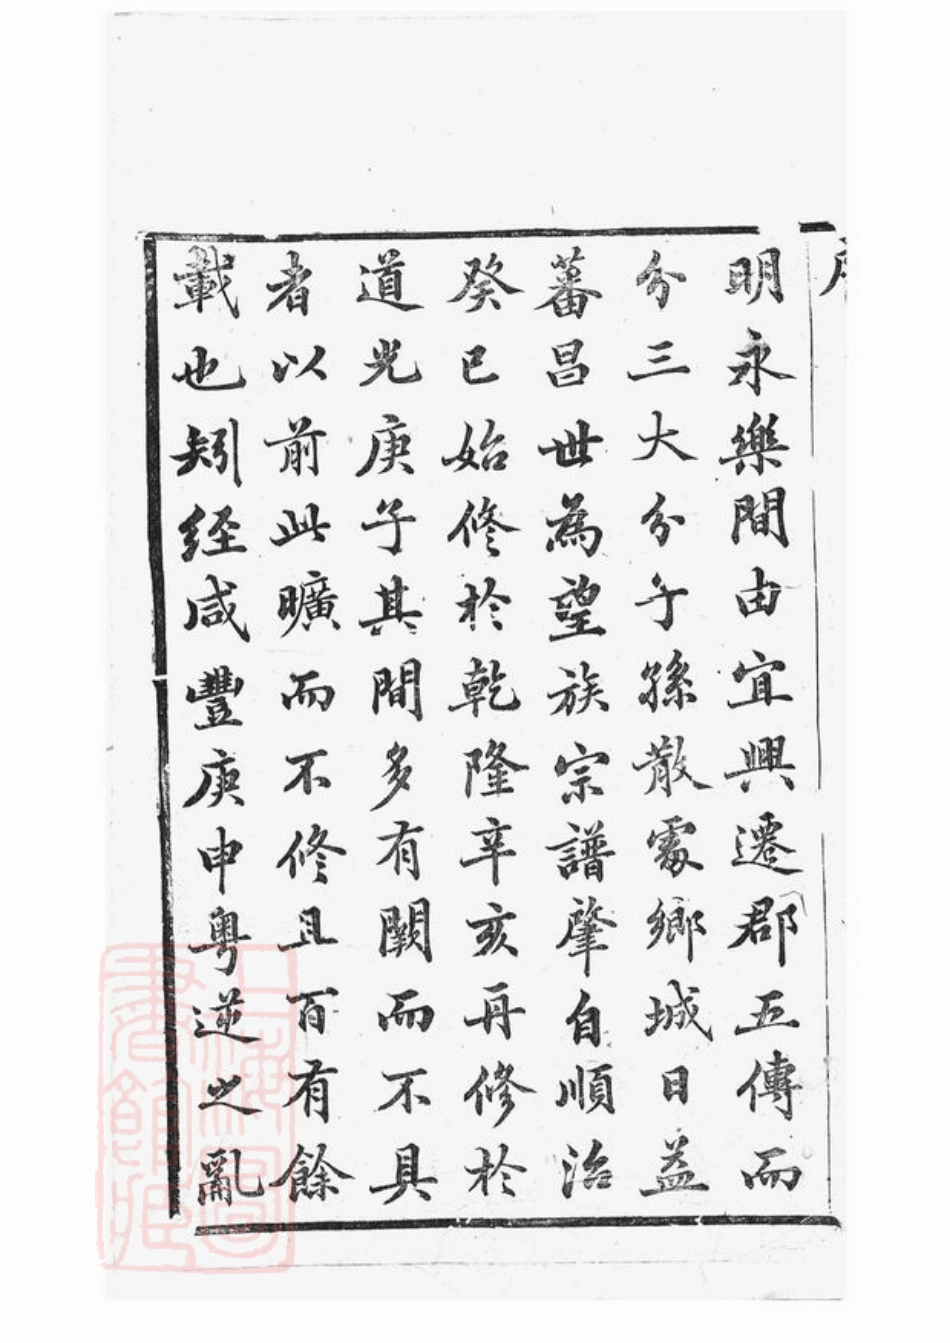 明永樂間由宜興遷郡五傳而
分三大分子孫散處鄉城日益
蕃昌世為望族宗譜肇自順治
癸巳始修於乾隆辛亥再修於
道光庚子其間多有闕而不具
者以前此曠而不修且百有餘
載也矧経咸豐庚申粵逆之亂
上海圖
書館藏